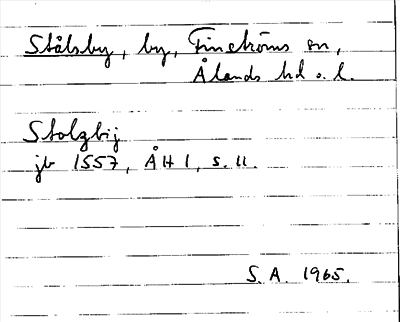 Stålsby, by, Finströms sn,
Ålands hd o. l.
Stolzbij
jb 1557, ÅH 1, s. 11.
S. A. 1965.